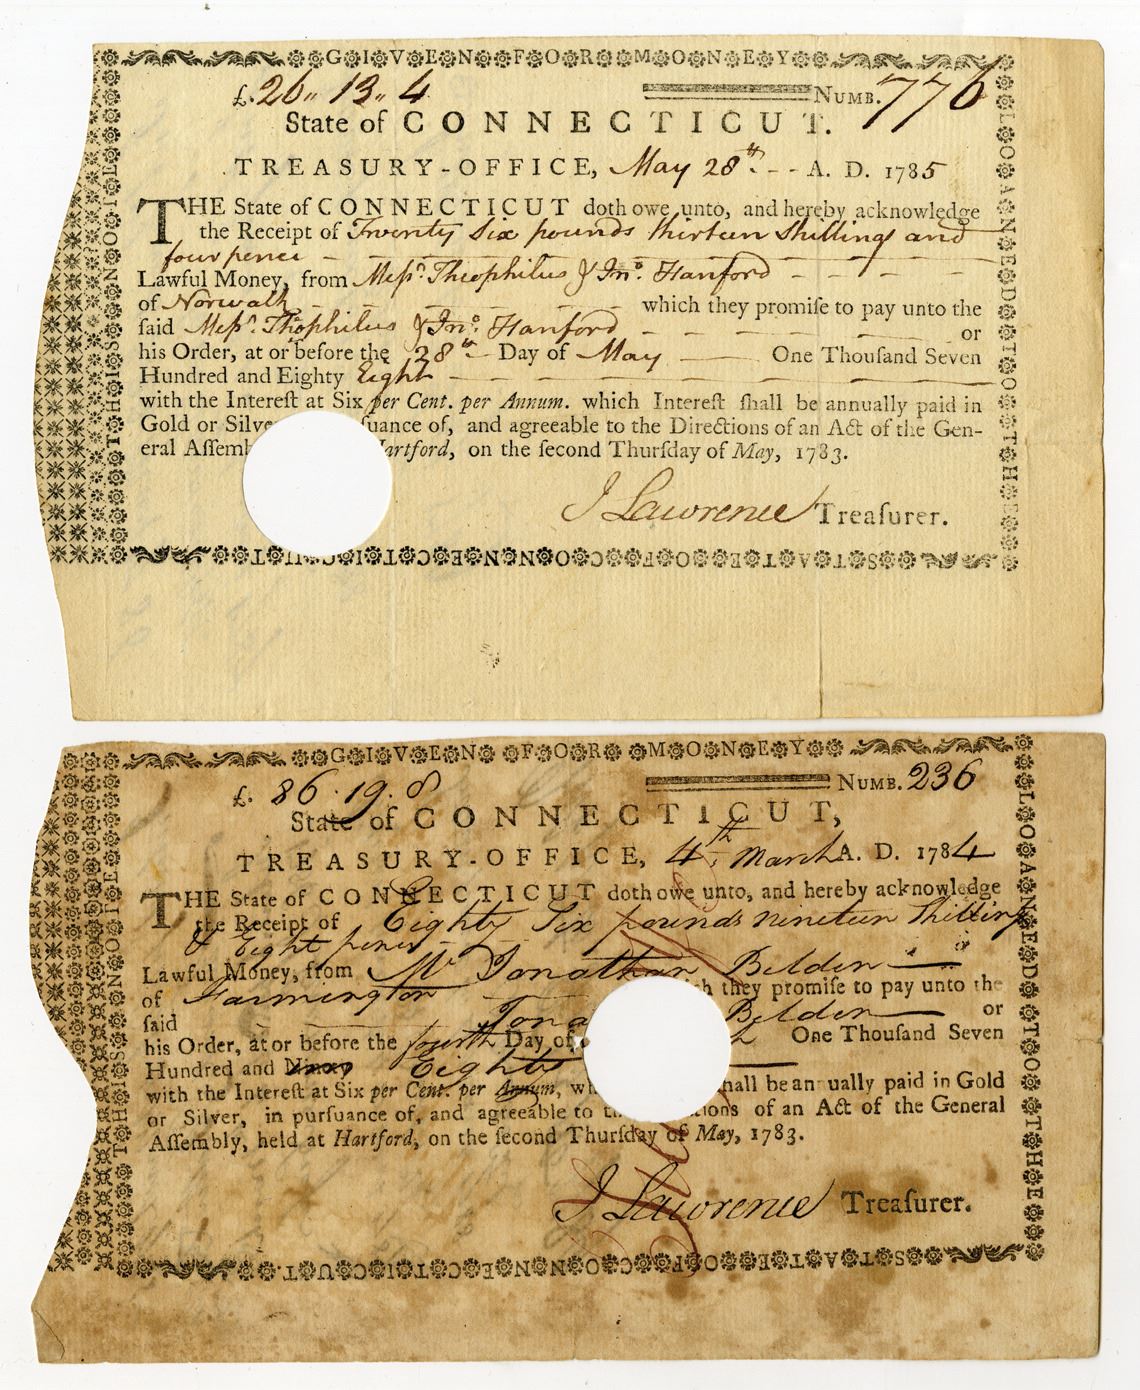 GIVEN FOR MONEY
£.26 〃 13 〃 4 NUMB. 776
State of CONNECTICUT.
TREASURY-OFFICE, May 28th. - - A. D. 1785
THE State of CONNECTICUT doth owe unto, and hereby acknowledge
the Receipt of Twenty Six pounds thirteen Shillings and
four pence
Lawful Money, from Messrs. Theophilus & Jno. Hanford
of Norwalk which they promiſe to pay unto the
ſaid Messrs. Thophilus & Jno. Hanford or
his Order, at or before the 28th Day of May One Thouſand Seven
Hundred and Eighty Eight
with the Intereſt at Six per Cent. per Annum. which Intereſt ſhall be annually paid in
Gold or Silve suance of, and agreeable to the Directions of an Act of the Gen-
eral Aſſemb Hartford, on the ſecond Thurſday of May, 1783.
J Lawrence Treaſurer.
LOANED TO THE
STATE OF CONNECTICUT
THIS NOTE
GIVEN FOR MONEY
£. 86 . 19 . 8 NUMB. 236
State of CONNECTICUT,
TREASURY-OFFICE, 4th. March A. D. 1784
THE State of CONNECTICUT doth owe unto, and hereby acknowledge
the Receipt of Eighty Six pounds nineteen Shilling
& Eight pence
Lawful Money, from Mr Jonathan Belden
of Farmington ch they promiſe to pay unto the
ſaid Jona Belden or
his Order, at or before the fourth Day of h One Thouſand Seven
Hundred and Eighty
with the Intereſt at Six per Cent. per Annum, wh hall be an ually paid in Gold
or Silver, in purſuance of, and agreeable to t tions of an Act of the General
Aſſembly, held at Hartford, on the ſecond Thurſday of May, 1783.
J Lawrence Treaſurer.
LOANED TO THE
STATE OF CONNECTICUT
THIS NOTE